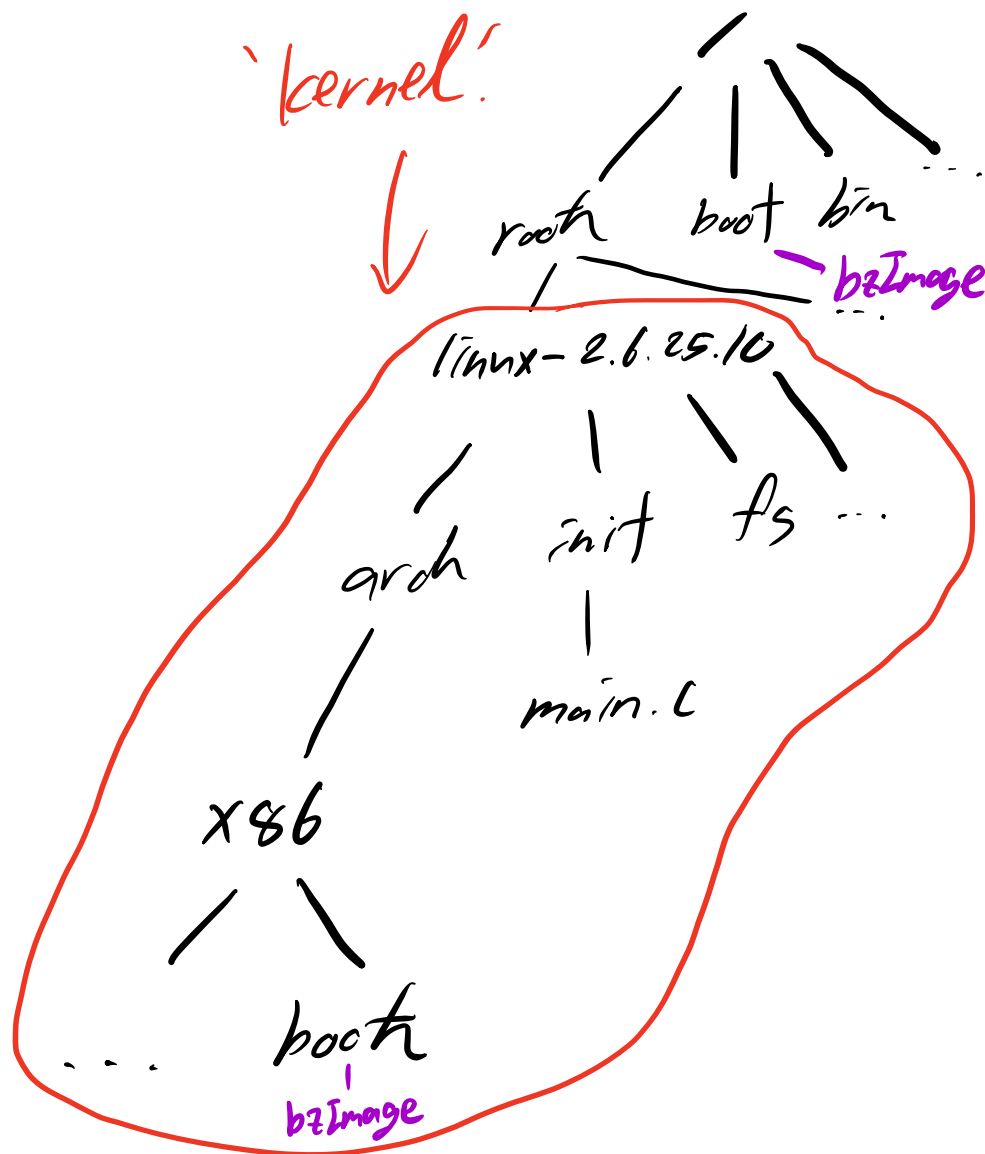 /
`kernel'.
root boot bin ....
bzImage
linux-2.6.25.10 ....
arch init fs ...
main.c
x86
... boot
bzImage